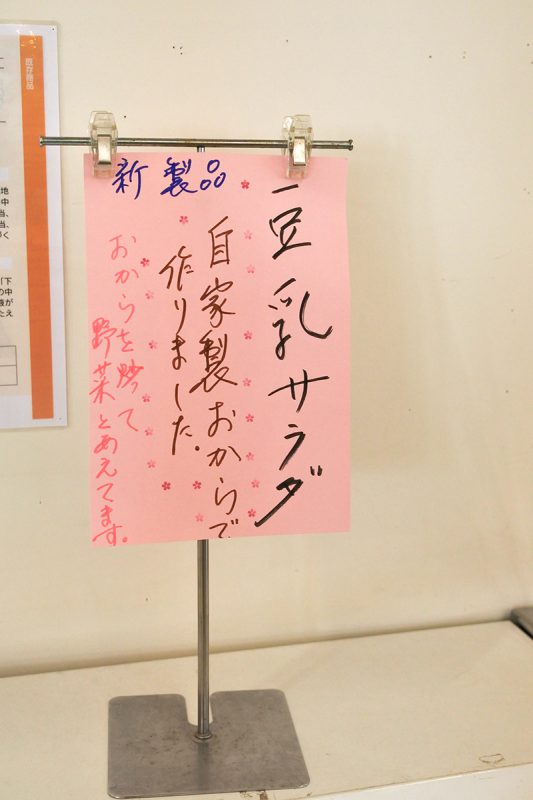 新製品
豆乳サラダ
自家製おからで
作りました。
おからを炒て
野菜とあえてます。
既存商品